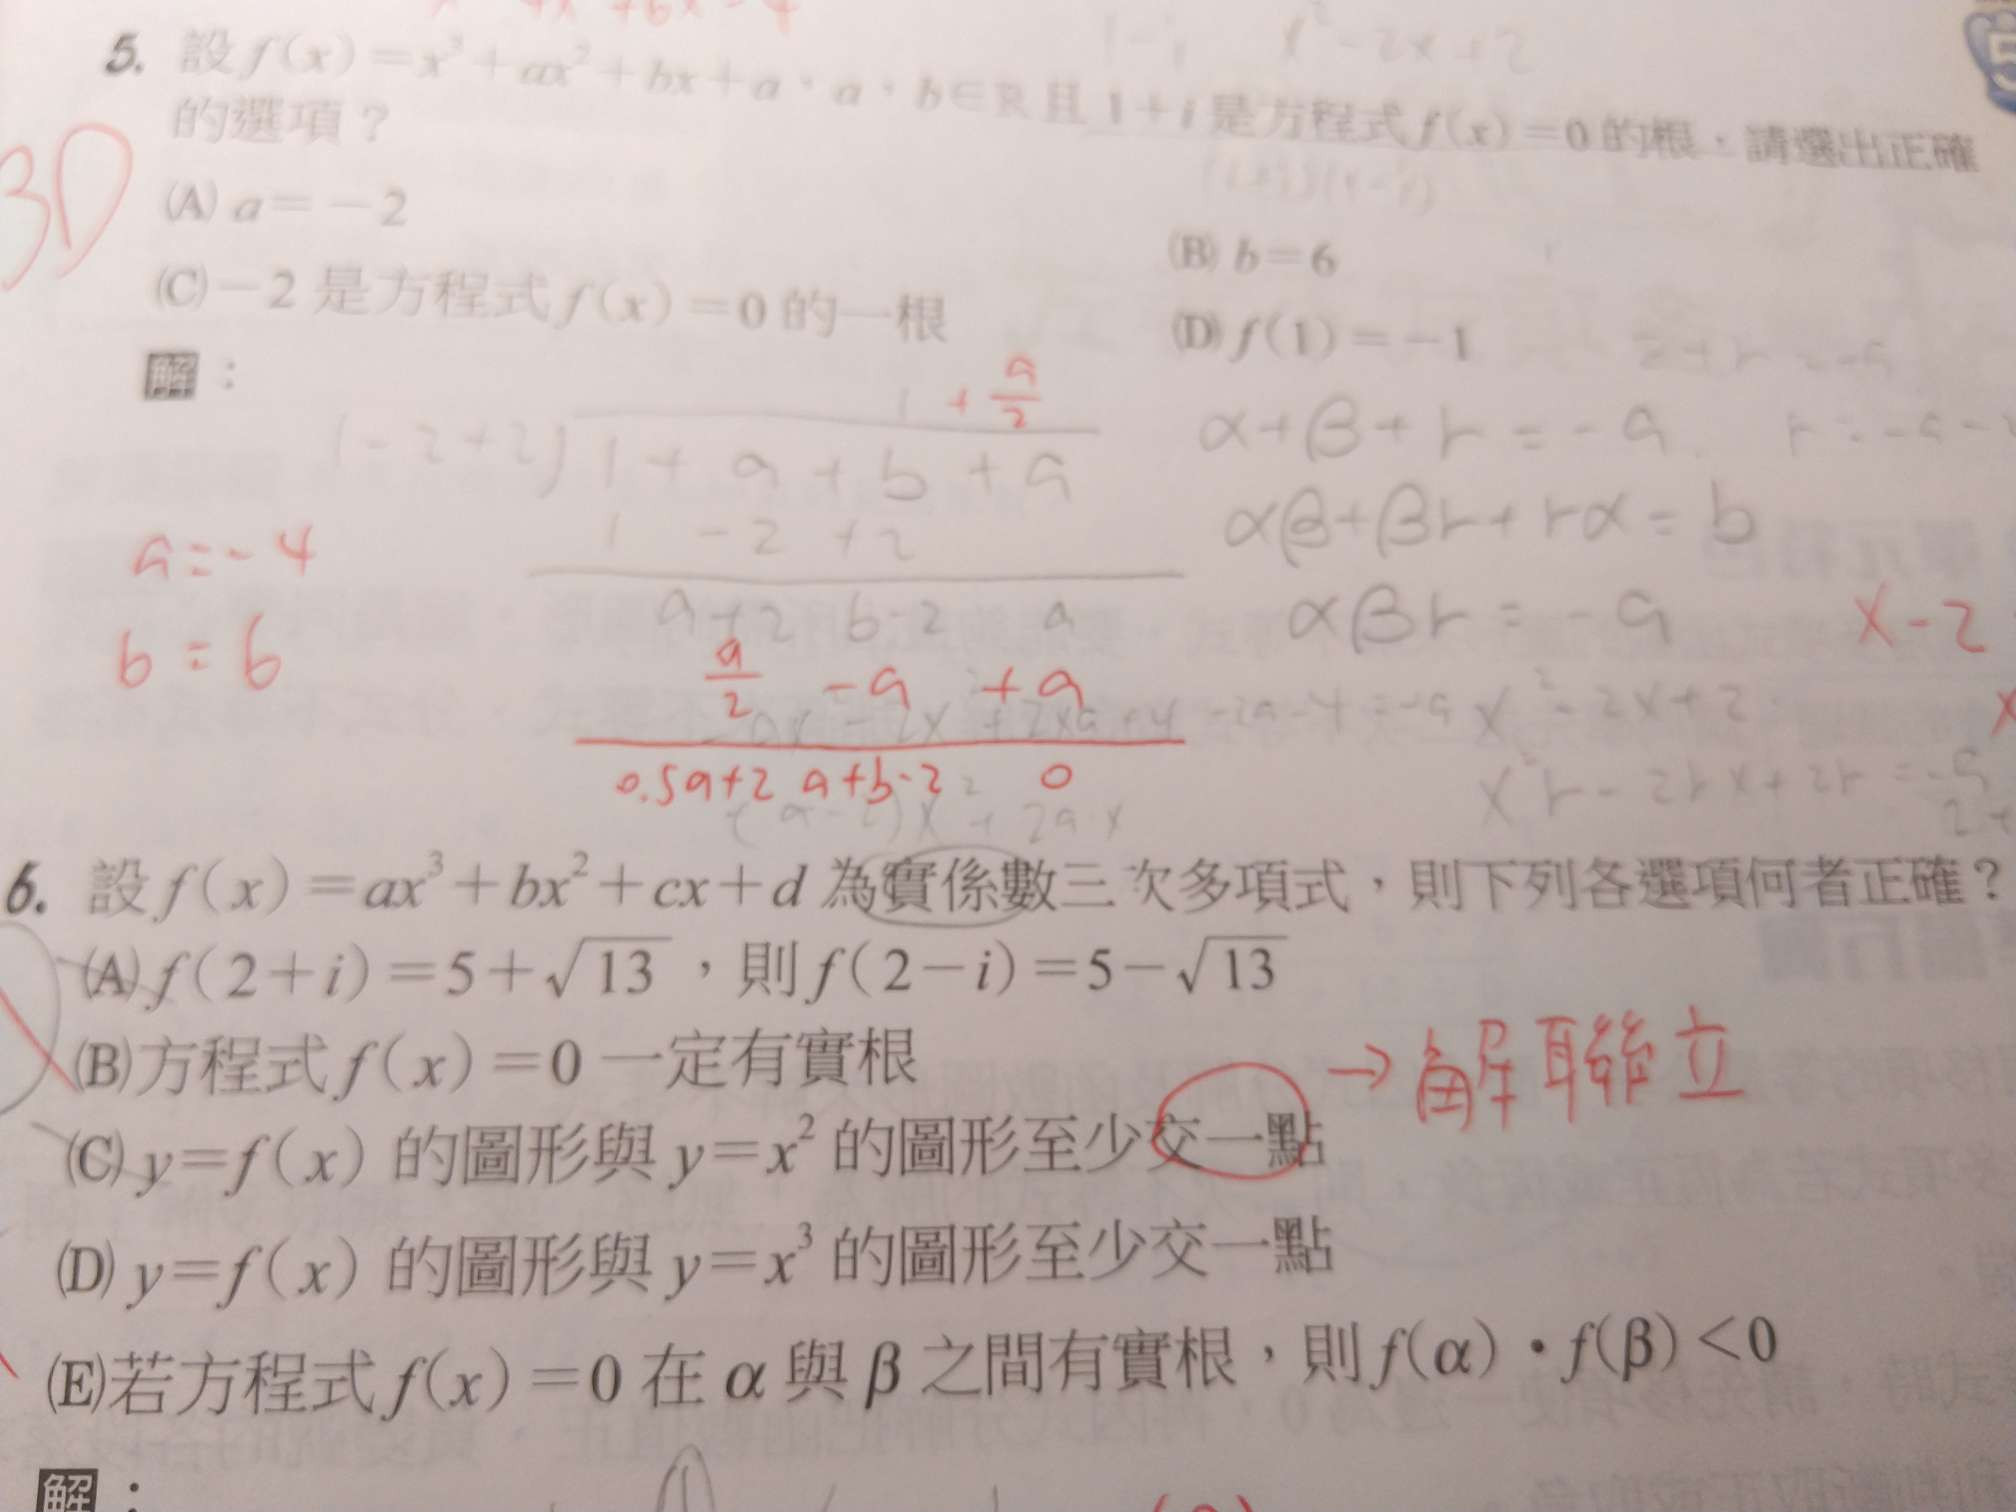 x -4x +6x-4
5. 設 f(x)=x³+ax²+bx+a,a、b∈ℝ 且 1+i 是方程式 f(x)=0 的根,請選出正確
1-i x²-2x+2
的選項?
3D
(A) a=-2
(B) b=6
(C)-2 是方程式 f(x)=0 的一根
(D) f(1)=-1
解:
1 + a/2
1-2+2) 1 + a + b + a
1 -2 +2
a+2 b-2 a
a/2 -a +a
0.5a+2 a+b-2 0
a=-4
b=6
α+β+r=-a
αβ+βr+rα=b
αβr=-a
x-2
x²-2x+2
6. 設 f(x)=ax³+bx²+cx+d 為實係數三次多項式,則下列各選項何者正確?
(A) f(2+i)=5+√13,則 f(2-i)=5-√13
(B)方程式 f(x)=0 一定有實根
→解聯立
(C) y=f(x) 的圖形與 y=x² 的圖形至少交一點
(D) y=f(x) 的圖形與 y=x³ 的圖形至少交一點
(E)若方程式 f(x)=0 在 α 與 β 之間有實根,則 f(α)・f(β)<0
解: